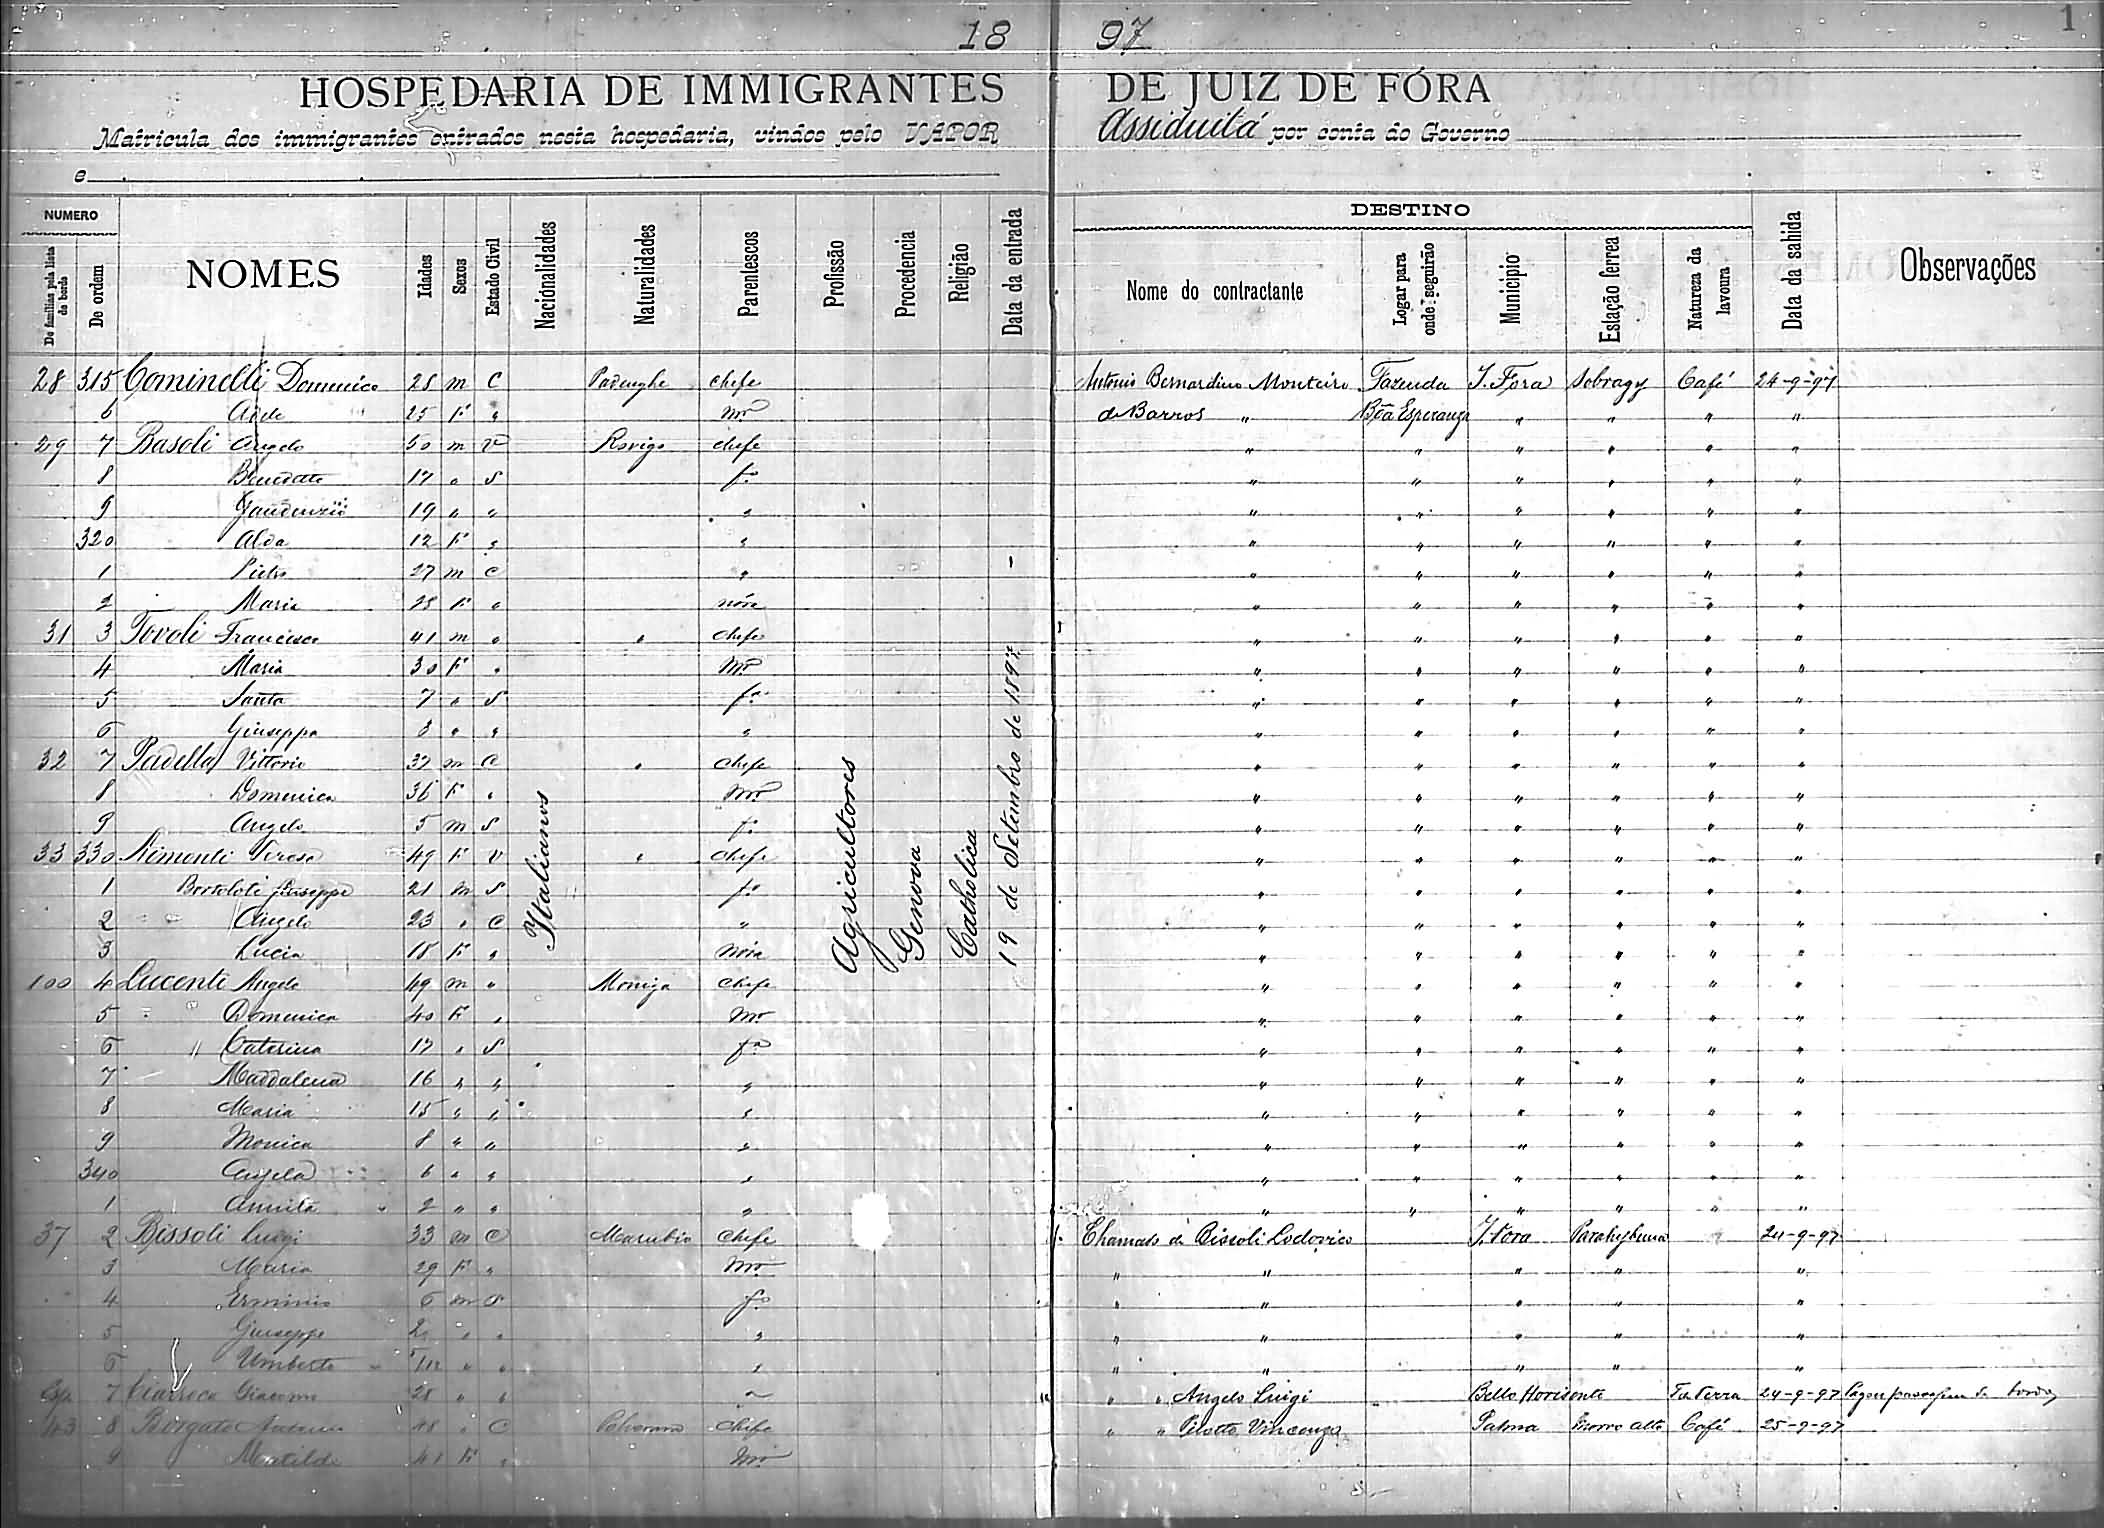 18 97
1
HOSPEDARIA DE IMMIGRANTES DE JUIZ DE FÓRA
Matricula dos immigrantes entrados nesta hospedaria, vindos pelo VAPOR Assiduitá por conta do Governo
e
NUMERO
De familias pela lista de bordo
De ordem
NOMES
Idades
Sexos
Estado Civil
Nacionalidades
Naturalidades
Parentescos
Profissão
Procedencia
Religião
Data da entrada
DESTINO
Nome do contractante
Logar para onde seguirão
Municipio
Estação ferrea
Natureza da lavoura
Data da sahida
Observações
Italianos
Agricultores
Genova
Catholica
19 de Setembro de 1897
28 315 Cominelli Domenico 25 m C chefe Antonio Bernardino Monteiro Fazenda J. Fora Sobragy Café 24-9-97
6 25 F " mer de Barros " Bôa Esperança " " " "
29 7 Basoli Angelo 50 m V Rovigo chefe " " " " " "
8 Benedetto 17 " S fo " " " " " "
9 19 " " " " " " " " "
320 Alda 12 F " " " " " " " "
1 Pietro 27 m C " " " " " " "
2 Maria 25 F " nóra " " " " " "
31 3 Tovoli Francisco 41 m " " chefe " " " " " "
4 Maria 30 F " mer " " " " " "
5 Santa 7 " S fa " " " " " "
6 Giuseppa 3 " " " " " " " " "
32 7 Padella Vittorio 37 m C " chefe " " " " " "
8 Domenica 36 F " mer " " " " " "
9 Angelo 5 m S fo " " " " " "
33 330 Teresa 49 F V " chefe " " " " " "
1 Bortoloti Giuseppe 21 m S fo " " " " " "
2 " Angelo 23 " C " " " " " " "
3 Lucia 18 F " nóra " " " " " "
100 4 Lucenti Angelo 49 m " chefe " " " " " "
5 " Domenica 40 F " mer " " " " " "
6 " Caterina 17 " S fa " " " " " "
7 Maddalena 16 " " " " " " " " "
8 Maria 15 " " " " " " " " "
9 Monica 8 " " " " " " " " "
340 Angela 6 " " " " " " " " "
1 Annita 2 " " " " " " " " "
37 2 Bissoli Luigi 33 m C chefe Chamado de Bissoli Lodovico J. Fora Parahybuna 24-9-97
3 Maria 29 F " mer " " " " "
4 Erminio 6 m S fo " " " " "
5 Giuseppe 2 " " " " " " " "
6 Umberto " " " " " " " "
7 Giacomo 28 " " " " Angelo Luigi Bello Horisonte 24-9-97
43 8 Borgato Antonio 48 " C chefe " " Pilotto Vincenzo Palma Morro alto Café 25-9-97
9 Matilde 41 F " mer